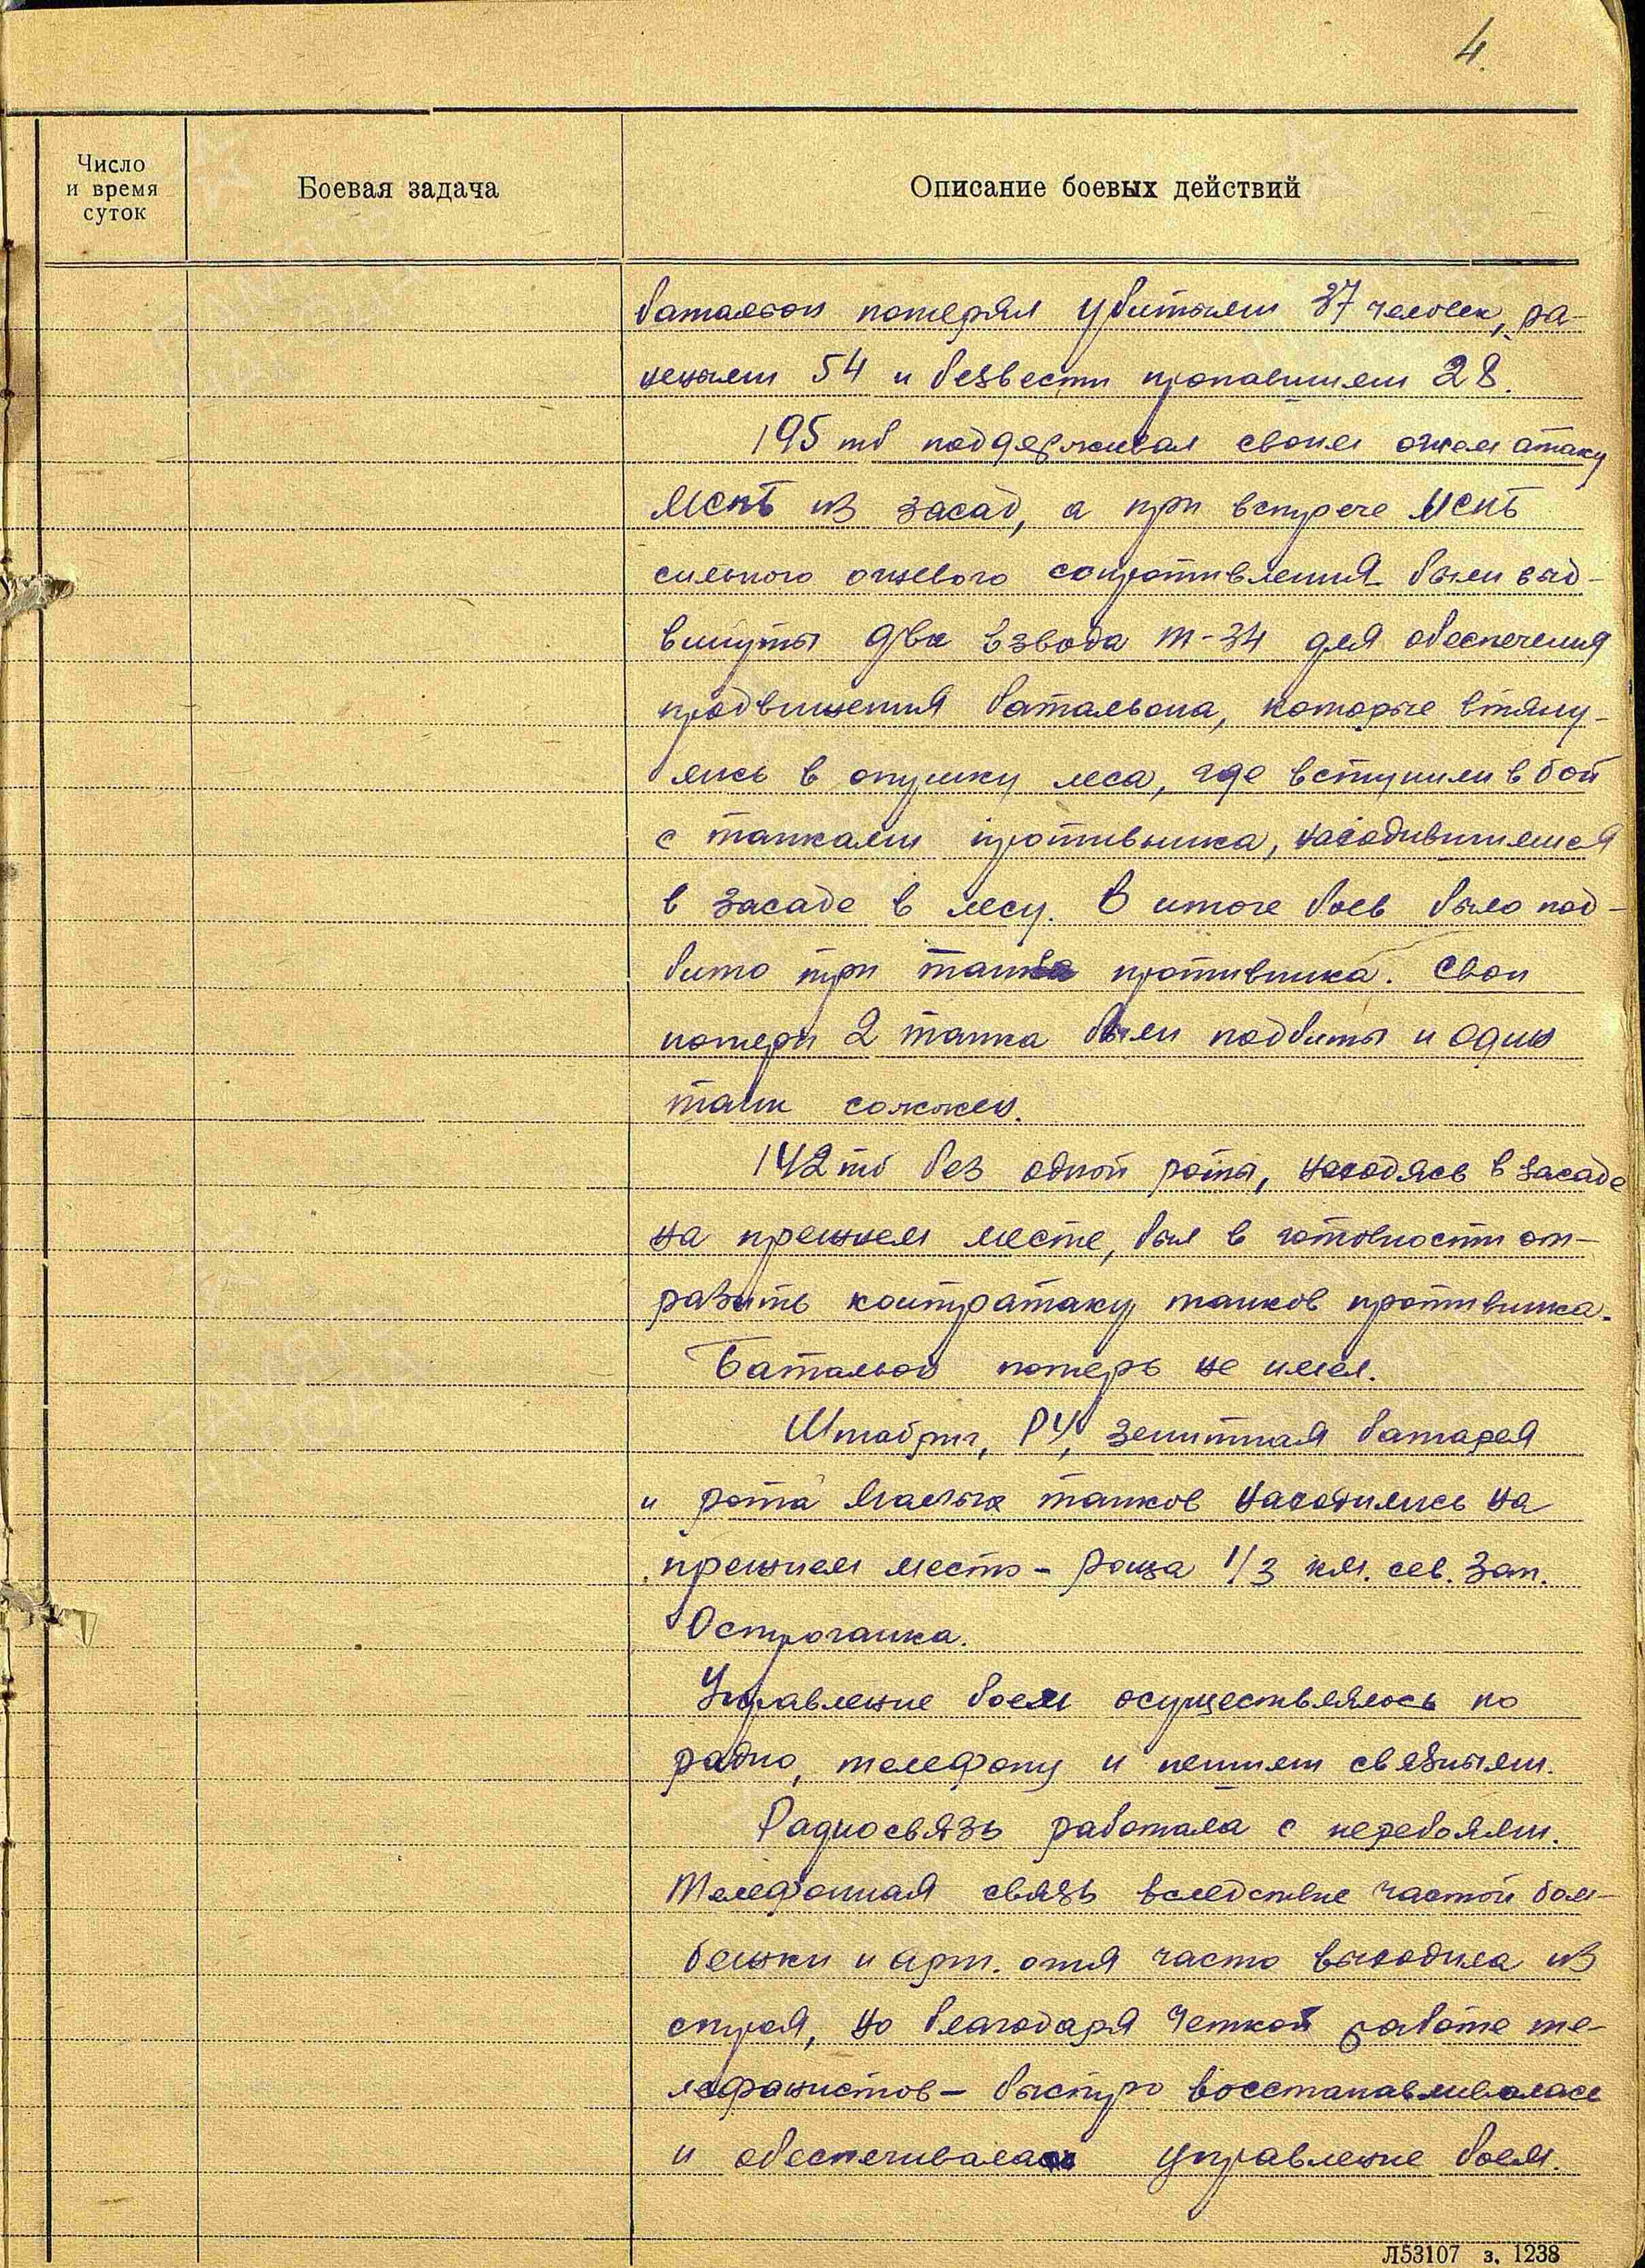 4.
Число
и время
суток
Боевая задача
Описание боевых действий
батальон потерял убитыми 37 человек, ра-
неными 54 и безвести пропавшими 28.
195 тб поддерживал своим огнем атаку
МСПБ из засад, а при встрече МСПБ
сильного огневого сопротивления были выд-
винуты два взвода Т-34 для обеспечения
продвижения батальона, которые втяну-
лись в опушку леса, где вступили в бой
с танками противника, находившимися
в засаде в лесу. В итоге боев было под-
бито три танка противника. Свои
потери 2 танка были подбиты и один
танк сожжен.
142 тб без одной роты, находясь в засаде
на прежнем месте, был в готовности от-
разить контратаку танков противника.
Батальон потерь не имел.
Штабриг, РУ, зенитная батарея
и рота малых танков находились на
прежнем место - роща 1/3 км. сев. зап.
Острочанка.
Управление боем осуществлялось по
радио, телефону и пешими связными.
Радиосвязь работала с перебоями.
Телефонная связь вследствие частой бом-
бежки и арт. огня часто выходила из
строя, но благодаря четкой работе те-
лефонистов - быстро восстанавливалась
и обеспечивала управление боем.
Л53107 з. 1238